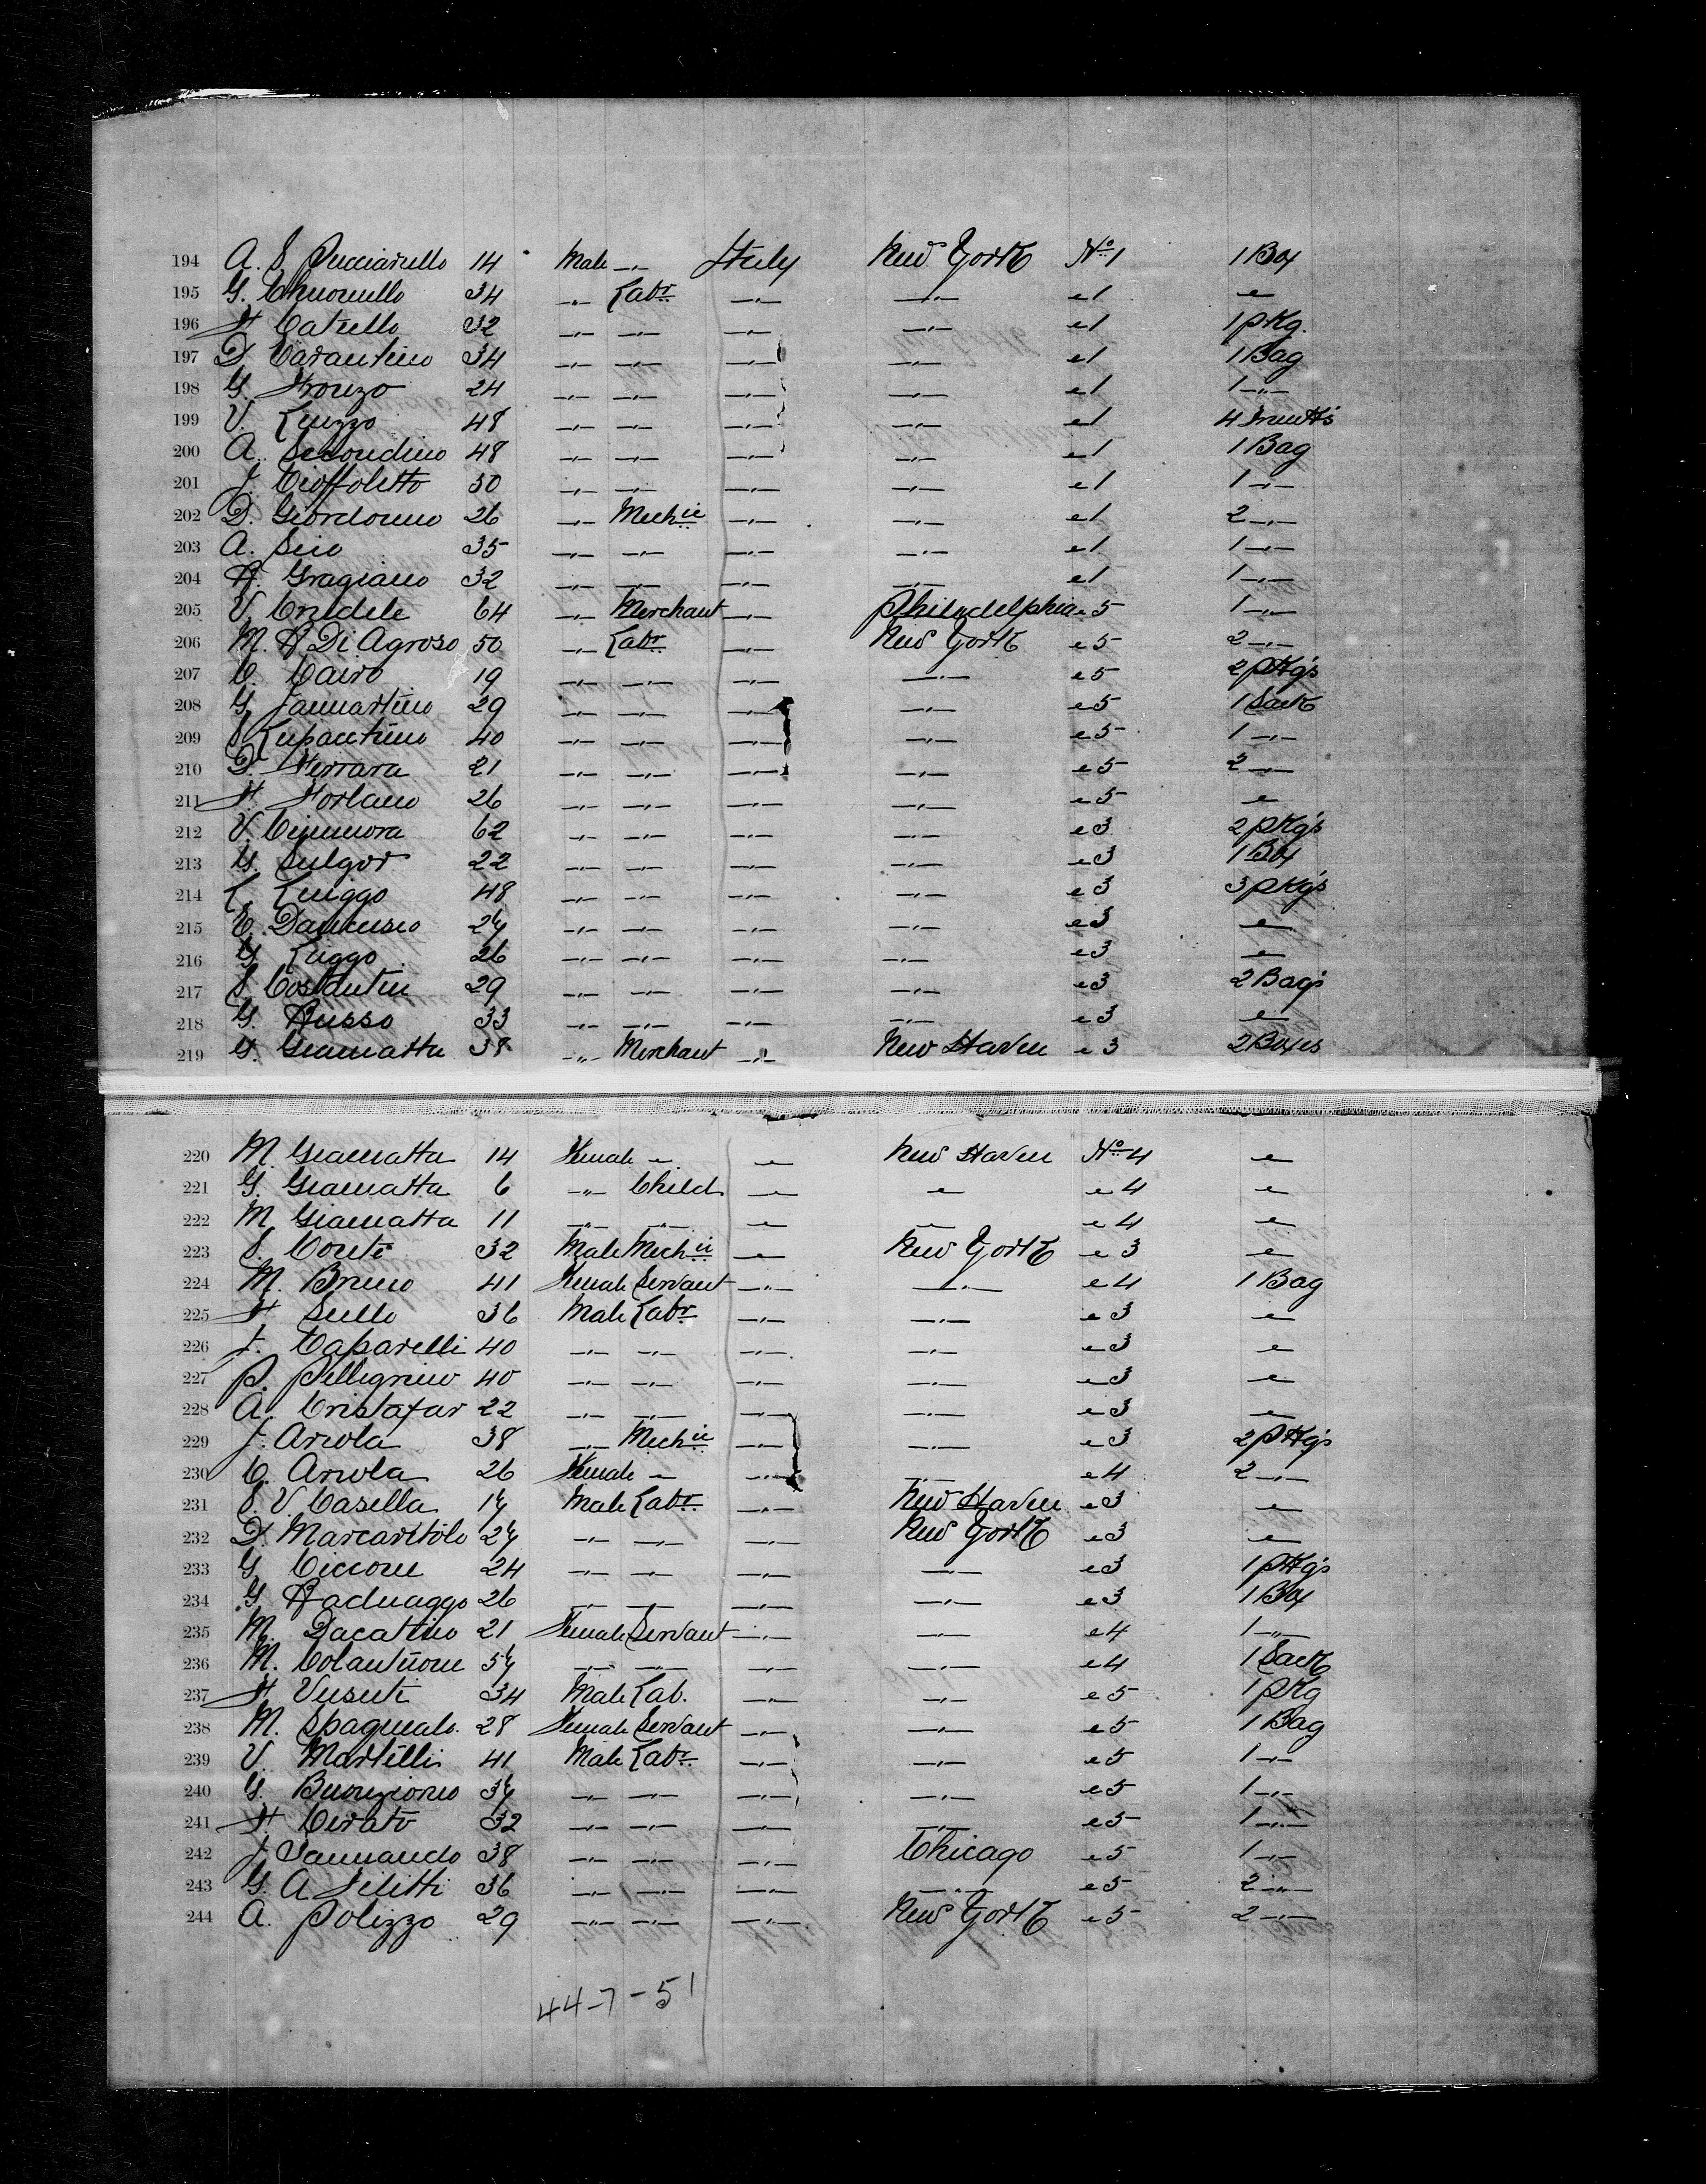 194 A. S. Pucciarello 14 Male -"- Italy New York No 1 1 Box
195 G. 34 -"- Labr -"- -"- " 1 "
196 F. Catullo 32 -"- -"- -"- -"- " 1 1 pKg.
197 D. Carantino 34 -"- -"- -"- -"- " 1 1 Bag
198 G. Fronzo 24 -"- -"- -"- -"- " 1 1 -"-
199 V. Luzzo 48 -"- -"- -"- -"- " 1 4
200 A. Secondino 48 -"- -"- -"- -"- " 1 1 Bag
201 J. Cioffoletto 30 -"- -"- -"- -"- " 1 1 -"-
202 D. Giordonno 26 -"- Mechic -"- -"- " 1 2 -"-
203 A. Sico 35 -"- -"- -"- -"- " 1 1 -"-
204 R. Gragiano 32 -"- -"- -"- -"- " 1 1 -"-
205 V. Credele 64 -"- Merchant -"- Philadelphia " 5 1 -"-
206 M. R. Di Agroso 50 -"- Labr -"- New York " 5 2 -"-
207 C. Cairo 19 -"- -"- -"- -"- " 5 2 pKg's
208 G. Jannartino 29 -"- -"- -"- -"- " 5 1 Sack
209 S. Lupantino 40 -"- -"- -"- -"- " 5 1 -"-
210 D. Ferrara 21 -"- -"- -"- -"- " 5 2 -"-
211 F. Forlano 26 -"- -"- -"- -"- " 5 "
212 V. Cimmora 62 -"- -"- -"- -"- " 3 2 pKg's
213 G. Sulgor 22 -"- -"- -"- -"- " 3 1 Box
214 L. Luiggo 48 -"- -"- -"- -"- " 3 3 pKg's
215 E. Dancusio 27 -"- -"- -"- -"- " 3 "
216 G. Luggo 26 -"- -"- -"- -"- " 3 "
217 S. Costantin 29 -"- -"- -"- -"- " 3 2 Bag's
218 G. Russo 33 -"- -"- -"- -"- " 3 "
219 G. Giamatta 38 -"- Merchant -"- New Haven " 3 2 Boxes
220 M. Giamatta 14 Female " " New Haven No 4 "
221 G. Giamatta 6 -"- Child " " " 4 "
222 M. Giamatta 11 -"- -"- " " " 4 "
223 S. Conte 32 Male Mechic " New York " 3 "
224 M. Bruno 41 Female Servant -"- -"- " 4 1 Bag
225 F. Sullo 36 Male Labr -"- -"- " 3 "
226 J. Caparelli 40 -"- -"- -"- -"- " 3 "
227 P. Pellegrino 40 -"- -"- -"- -"- " 3 "
228 A. Cristafar 22 -"- -"- -"- -"- " 3 "
229 J. Ariola 38 -"- Mechic -"- -"- " 3 2 pKg's
230 C. Ariola 26 Female " -"- -"- " 4 2 -"-
231 S. V. Casella 17 Male Labr -"- New Haven " 3 "
232 D. Marcaritolo 27 -"- -"- -"- New York " 3 "
233 G. Ciccone 24 -"- -"- -"- -"- " 3 1 pKg's
234 G. Raduaggo 26 -"- -"- -"- -"- " 3 1 Box
235 M. Dacatino 21 Female Servant -"- -"- " 4 1 -"-
236 M. Colantuone 57 -"- -"- -"- -"- " 4 1 Sack
237 F. Vusute 34 Male Lab. -"- -"- " 5 1 pKg
238 M. Spagnealo 28 Female Servant -"- -"- " 5 1 Bag
239 V. Martilli 41 Male Labr -"- -"- " 5 1 -"-
240 G. Buonziorno 37 -"- -"- -"- -"- " 5 1 -"-
241 F. Cerato 32 -"- -"- -"- -"- " 5 1 -"-
242 J. Sannando 38 -"- -"- -"- Chicago " 5 1 -"-
243 G. A. Filitti 36 -"- -"- -"- -"- " 5 2 -"-
244 A. Polizzo 29 -"- -"- -"- New York " 5 2 -"-
44-7-51